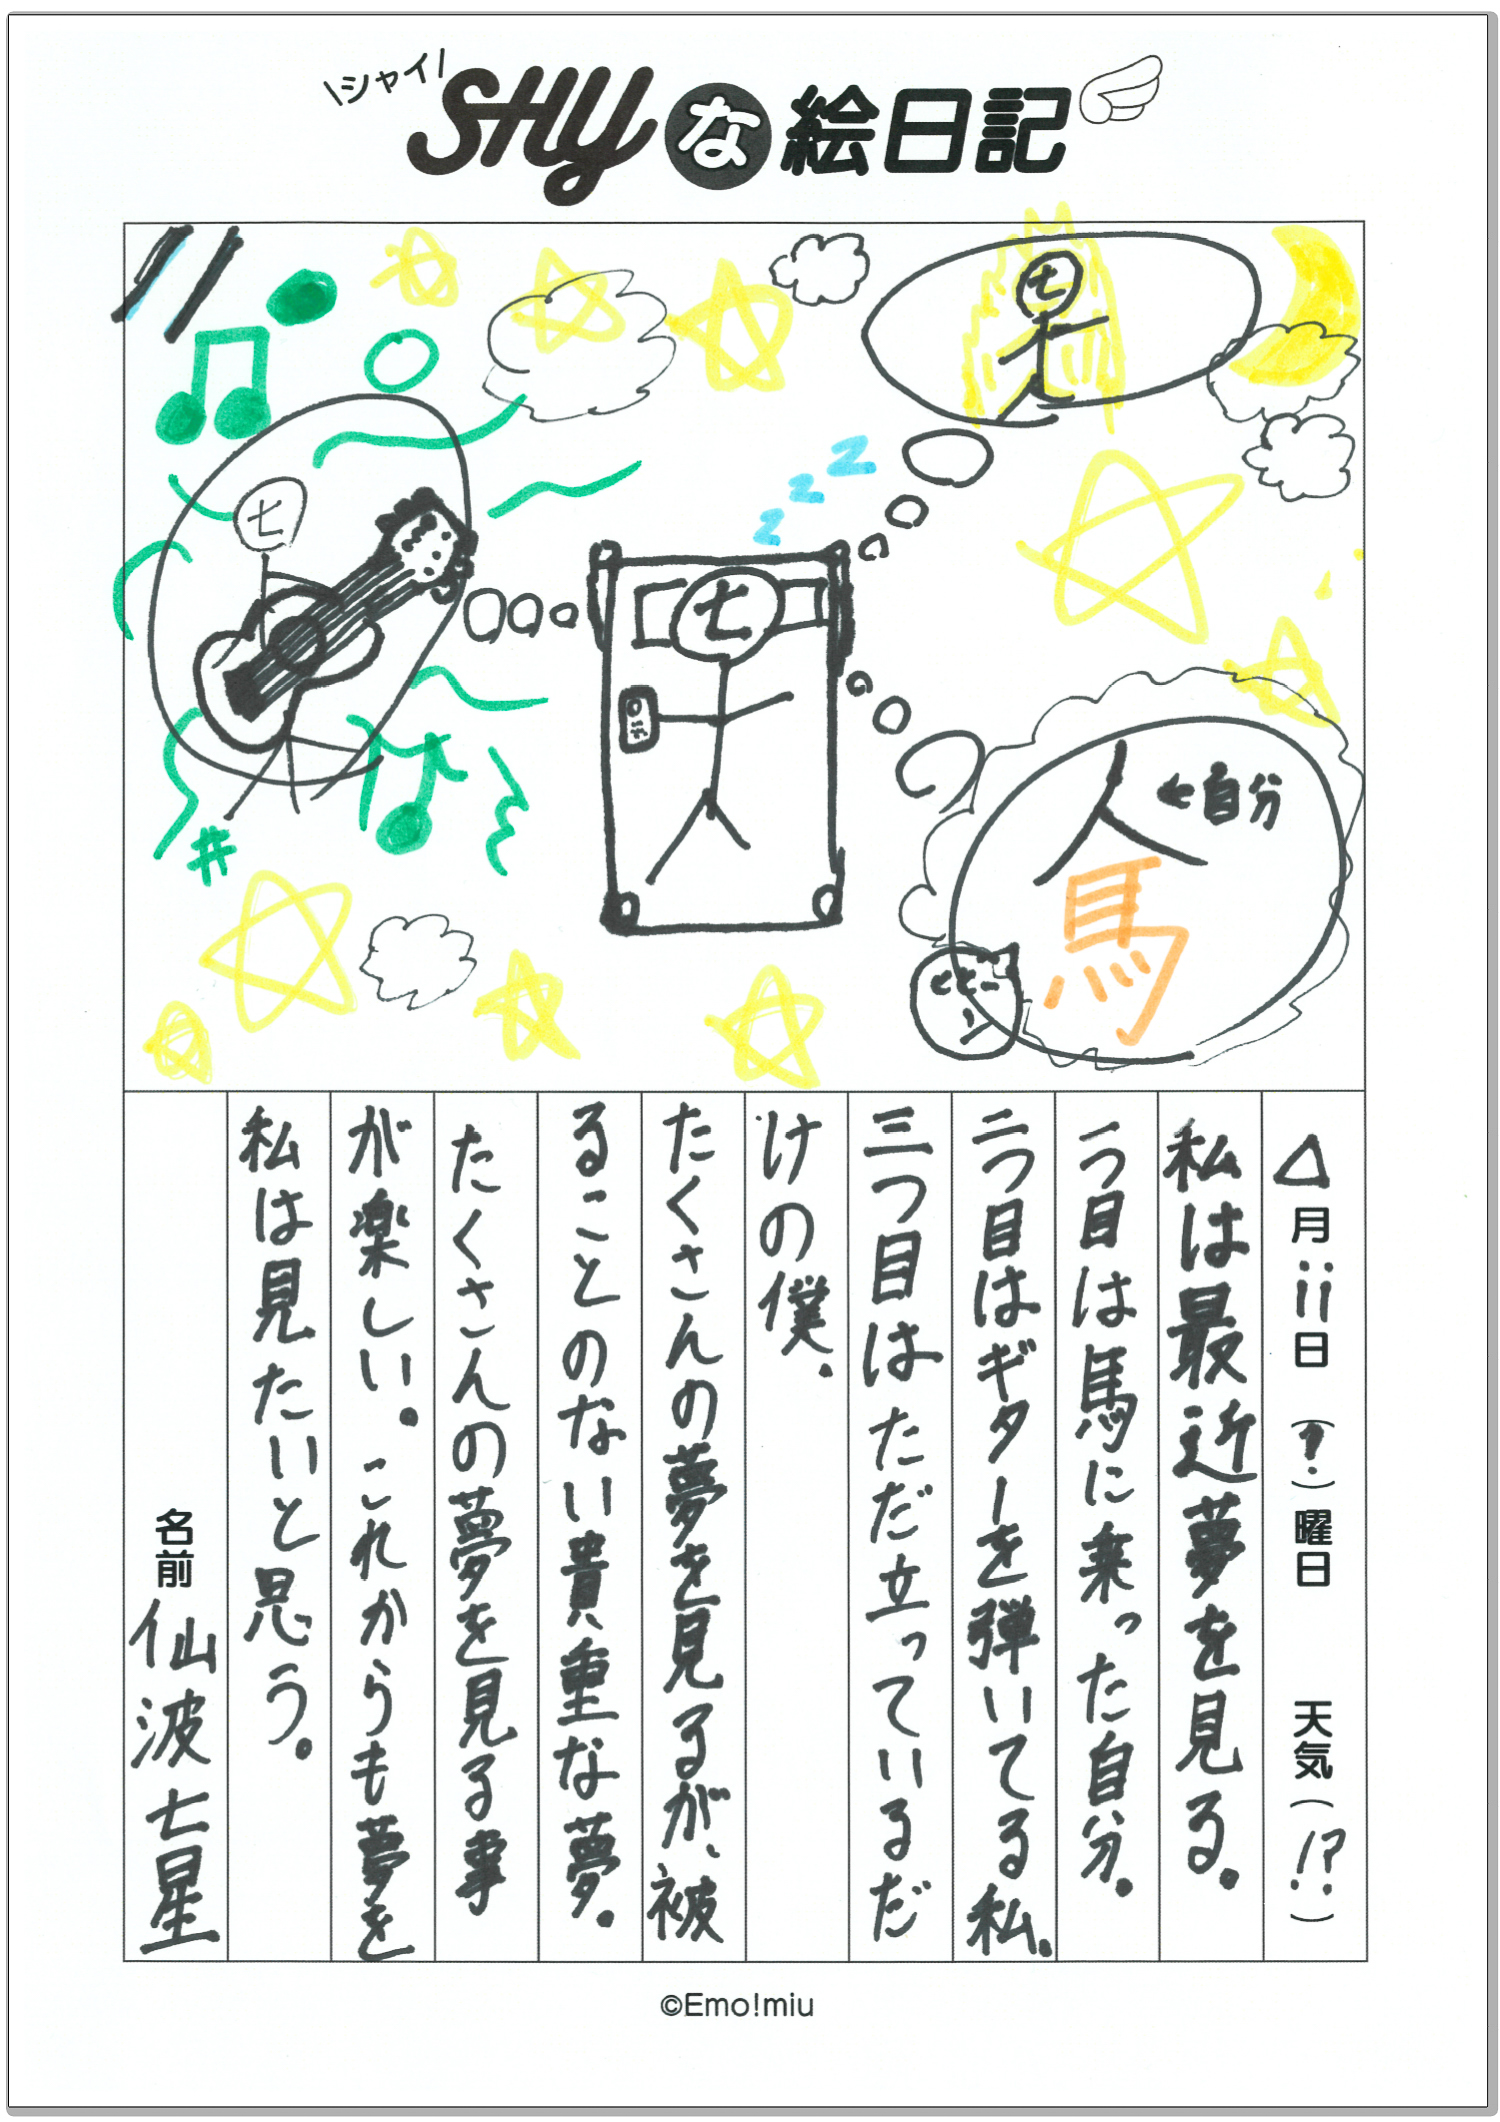 \シャイ/
SHYな絵日記
七
七
zzz
七
人←自分
馬
ヒヒーン
#
△月ii日(?)曜日 天気(!?)
私は最近夢を見る。
一つ目は馬に乗った自分。
二つ目はギターを弾いてる私。
三つ目はただ立っているだ
けの僕.
たくさんの夢を見るが、被
ることのない貴重な夢。
たくさんの夢を見る事
が楽しい。これからも夢を
私は見たいと思う。
名前 仙波七星
©Emo!miu